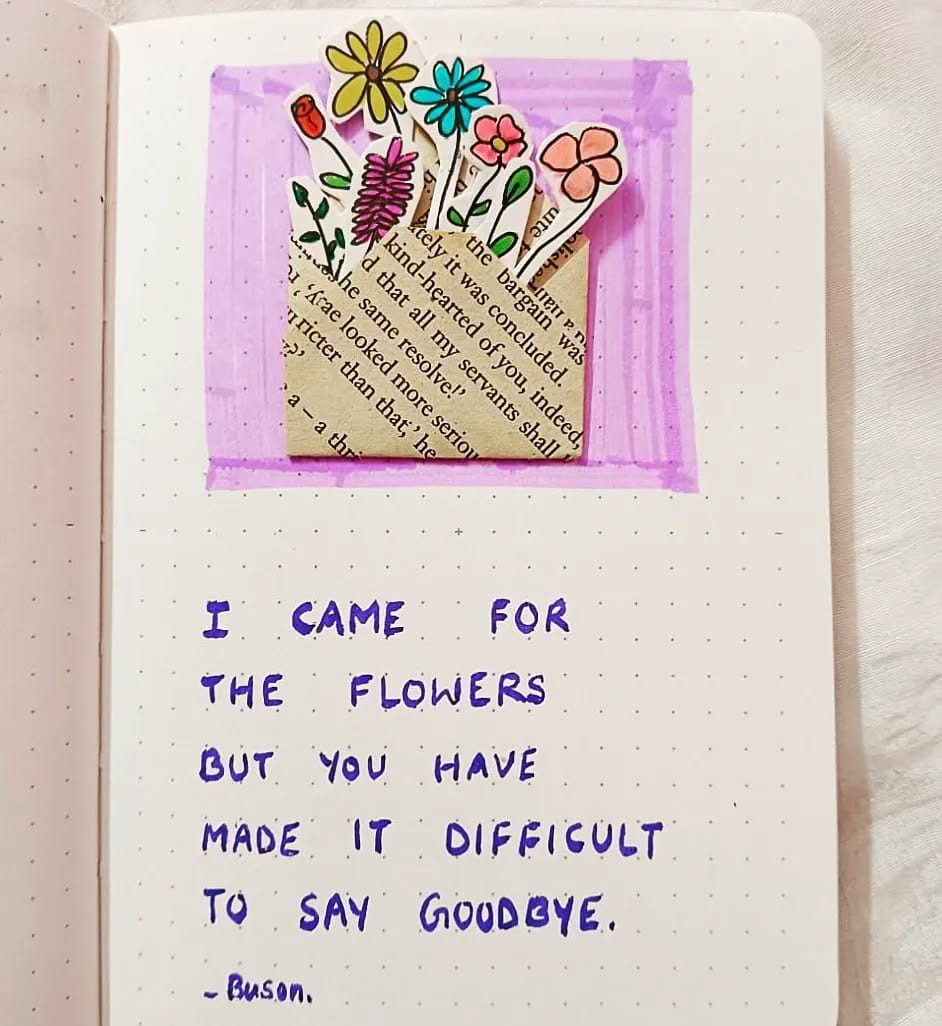 ure b
olishe
the bargain was
cely it was concluded.
kind-hearted of you, indeed,
d that all my servants shall
she same resolve!'
ae looked more seriou
ricter than that,' he
a – a thri
I CAME FOR
THE FLOWERS
BUT YOU HAVE
MADE IT DIFFICULT
TO SAY GOODBYE.
- Buson.